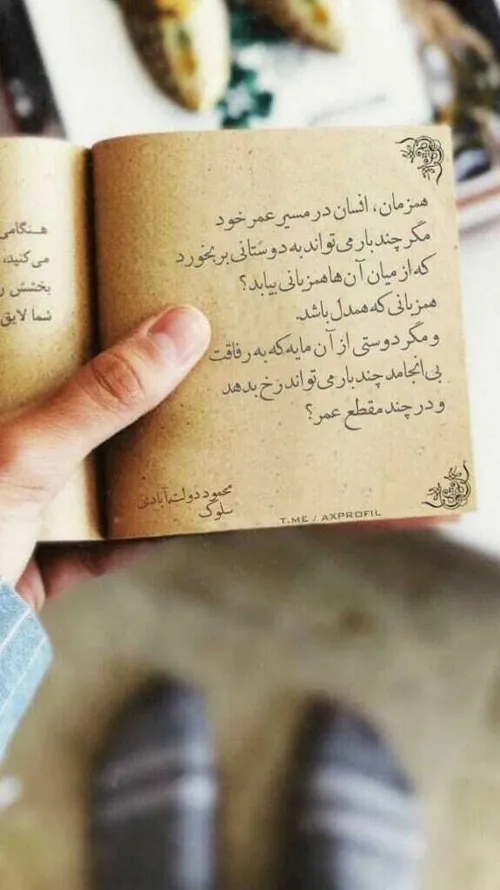 همزمان، انسان در مسیر عمر خود
مگر چند بار می‌تواند به دوستانی بر بخورد
که از میان آن‌ها همزبانی بیابد؟
همزبانی که همدل باشد.
و مگر دوستی از آن مایه که به رفاقت
بی‌انجامد چند بار می‌تواند رخ بدهد
و در چند مقطع عمر؟
محمود دولت‌آبادی
سلوک
T.ME / AXPROFIL
هـنگامی
می‌کنید،
بخشش ر
شما لایق